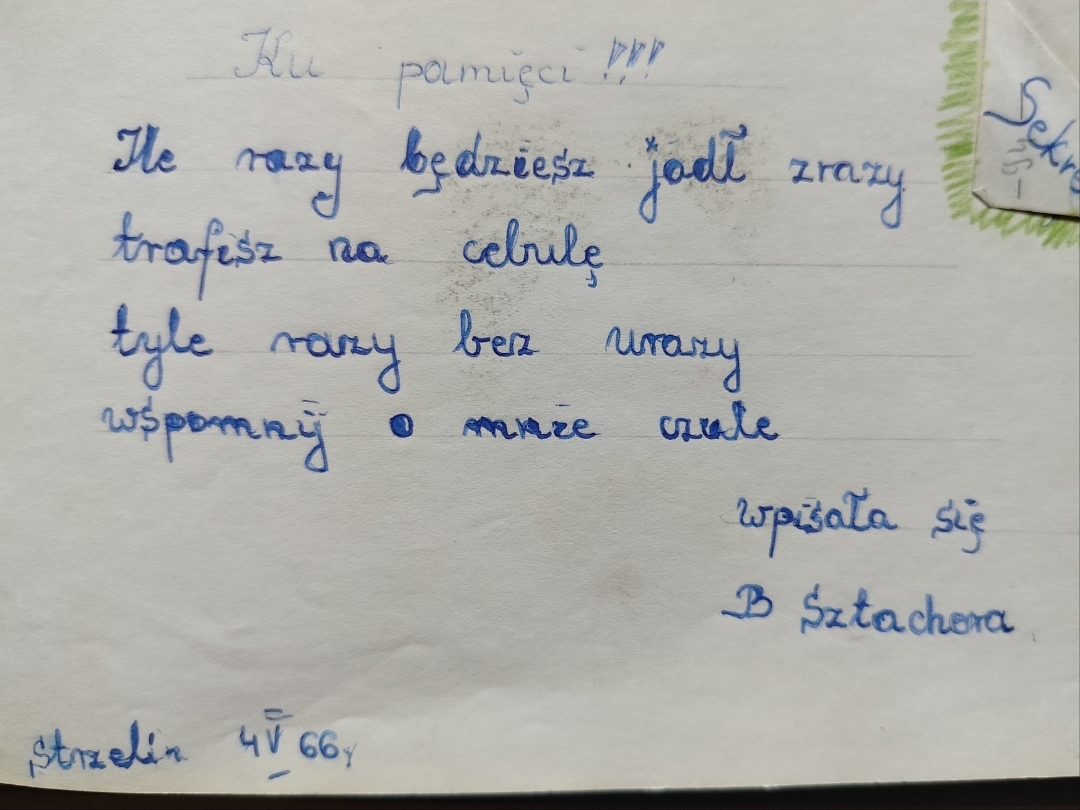 Ku pamięci!!!
Ile razy będziesz jadł zrazy
trafisz na cebulę
tyle razy bez urazy
wspomnij o mnie czule
wpisała się
B Sztachera
Strzelin 4 V 66r
Sekre